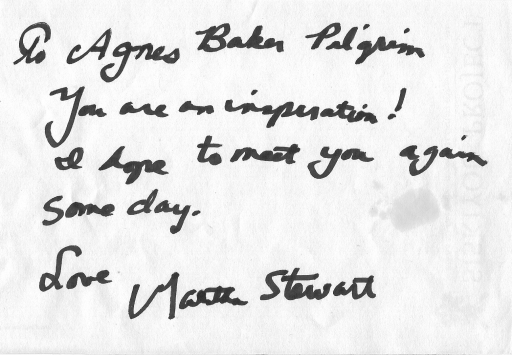 To Agnes Baker Pilgrim
You are an insperation!
I hope to meet you again
some day.
Love Martha Stewart